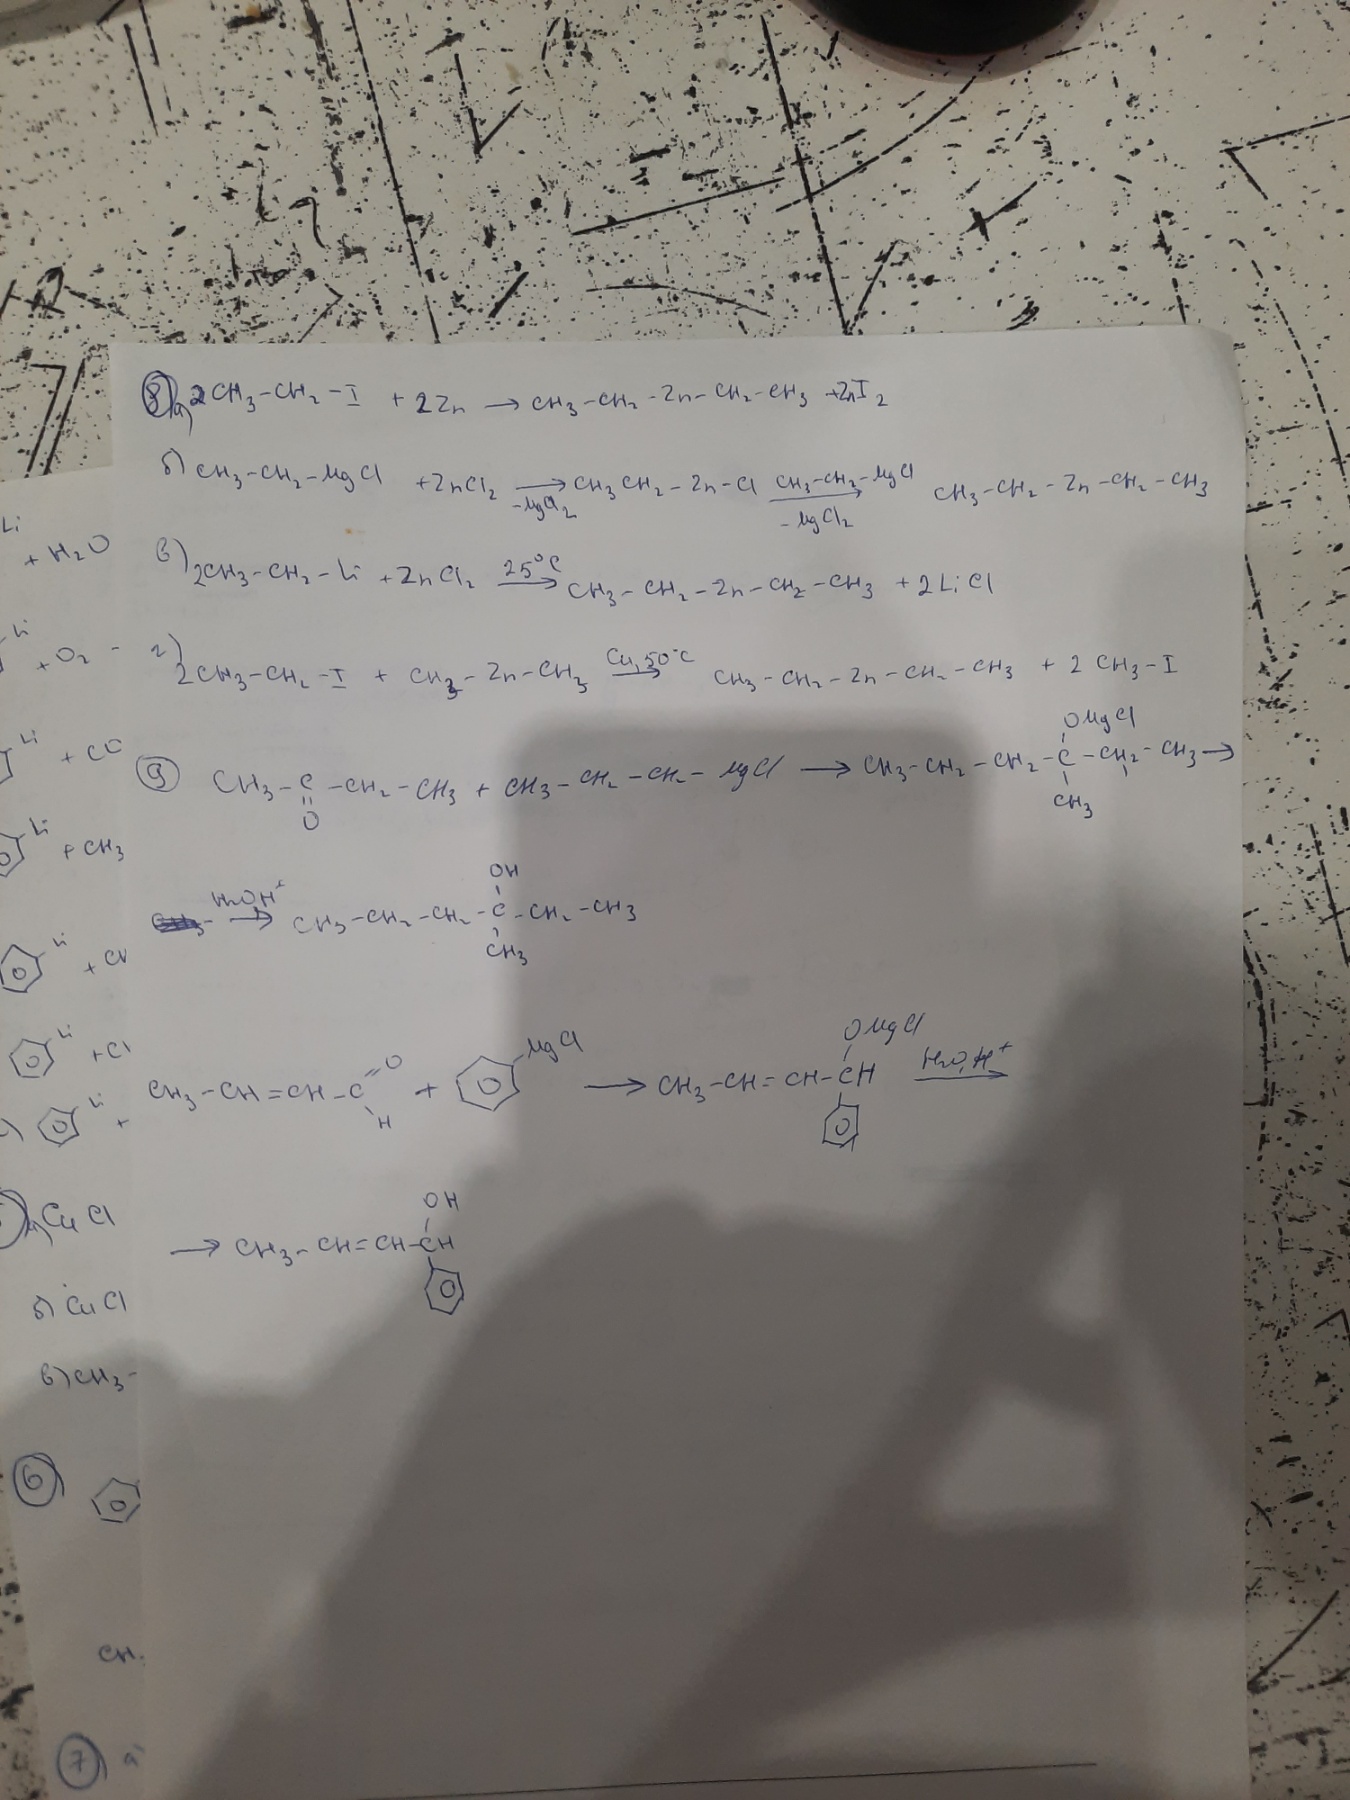 8) а) 2CH3-CH2-I + 2Zn → CH3-CH2-Zn-CH2-CH3 + ZnI2
б) CH3-CH2-MgCl + ZnCl2 → -MgCl2 CH3CH2-Zn-Cl CH3-CH2-MgCl → -MgCl2 CH3-CH2-Zn-CH2-CH3
в) 2CH3-CH2-Li + ZnCl2 25°C → CH3-CH2-Zn-CH2-CH3 + 2LiCl
г) 2CH3-CH2-I + CH3-Zn-CH3 Cu, 50°C → CH3-CH2-Zn-CH2-CH3 + 2CH3-I
OMgCl
9 CH3-C-CH2-CH3 + CH3-CH2-CH2-MgCl → CH3-CH2-CH2-C-CH2-CH3 →
O
CH3
OH
→ CH3-CH2-CH2-C-CH2-CH3
CH3
OMgCl
CH3-CH=CH-C O H + MgCl → CH3-CH=CH-CH H2O, H+ →
OH
→ CH3-CH=CH-CH
Li
+ H2O
Li
+ O2
Li
Li
+ CH3
Li
Li
+Cl
Li
+
а) CuCl
б) CuCl
в) CH3-
6
CH
7 а